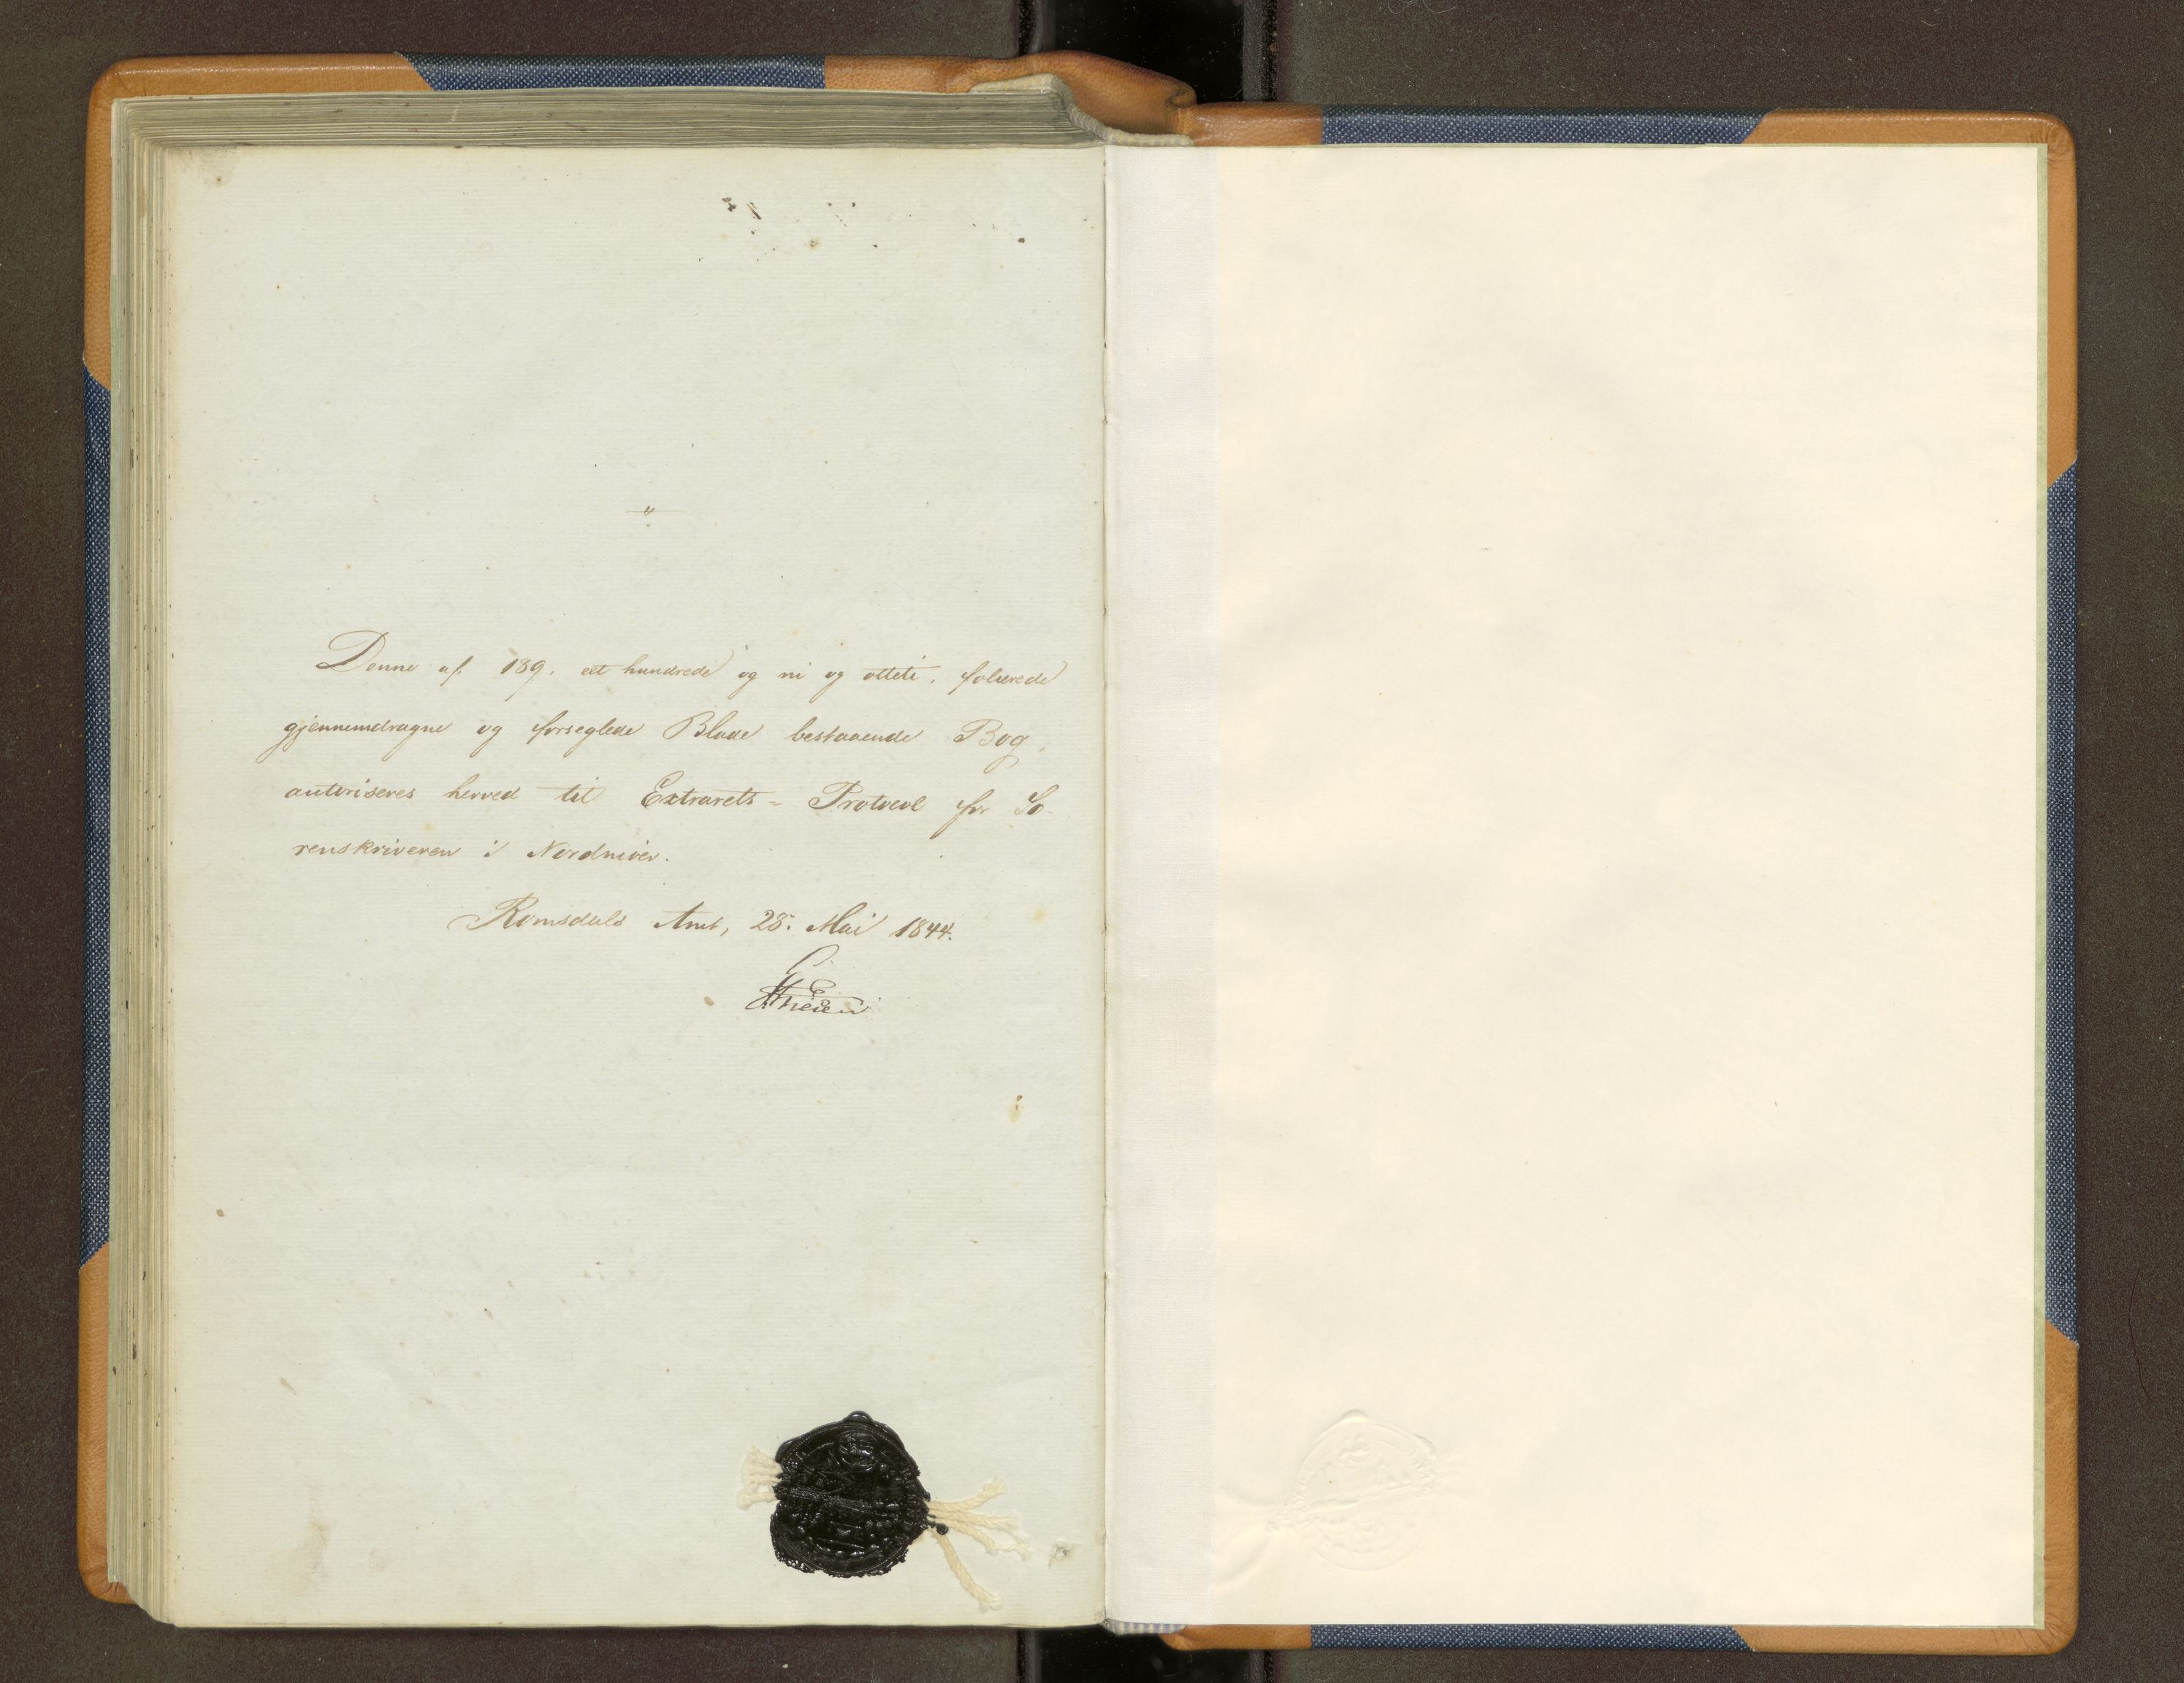 Denne af 189. et hundrede og ni og otteti, folierede
gjennemdragne og forseglede Blade bestaaende Bog,
autoriseres herved til Extrarets- Protocol for So-
renskriveren i Nordmøer.
Romsdals Amt, 28. Mai 1844.